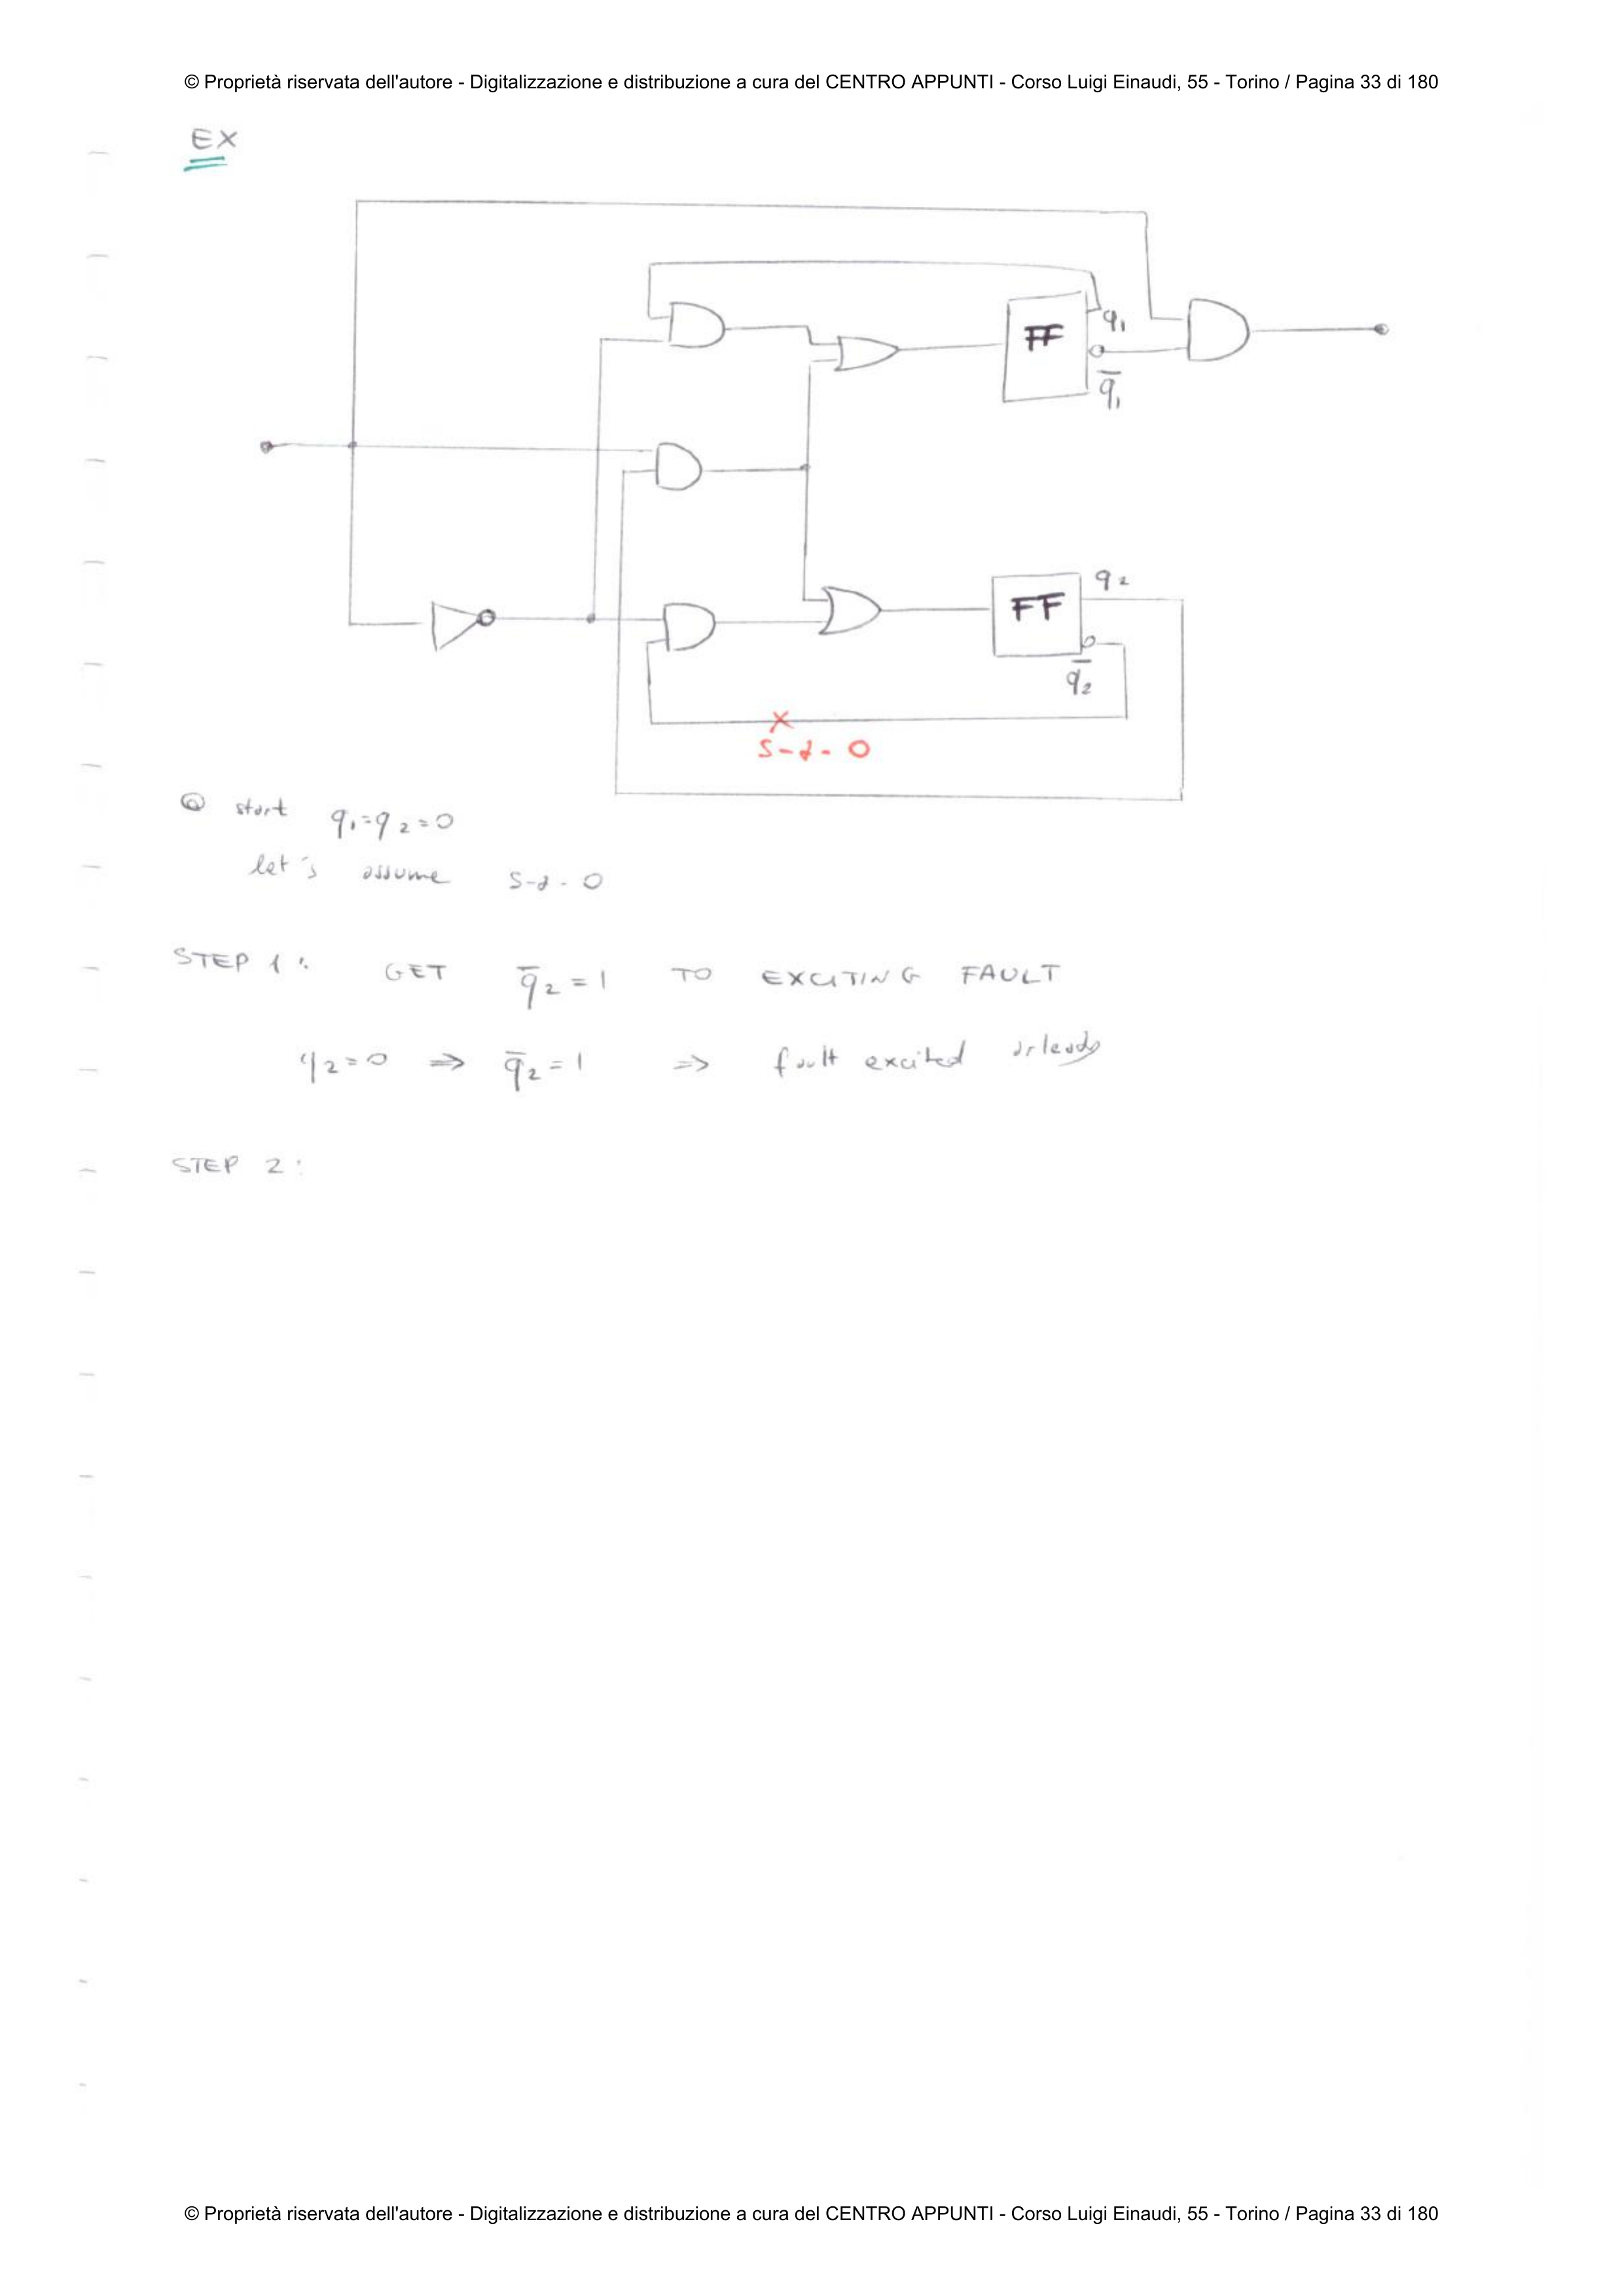 © Proprietà riservata dell'autore - Digitalizzazione e distribuzione a cura del CENTRO APPUNTI - Corso Luigi Einaudi, 55 - Torino / Pagina 33 di 180
EX
FF
q₁
q̅₁
FF
q₂
q̅₂
s-a-0
@ start q₁=q₂=0
let's assume s-a-0
STEP 1: GET q̅₂=1 TO EXCITING FAULT
q₂=0 ⇒ q̅₂=1 ⇒ fault excited arleady
STEP 2:
© Proprietà riservata dell'autore - Digitalizzazione e distribuzione a cura del CENTRO APPUNTI - Corso Luigi Einaudi, 55 - Torino / Pagina 33 di 180